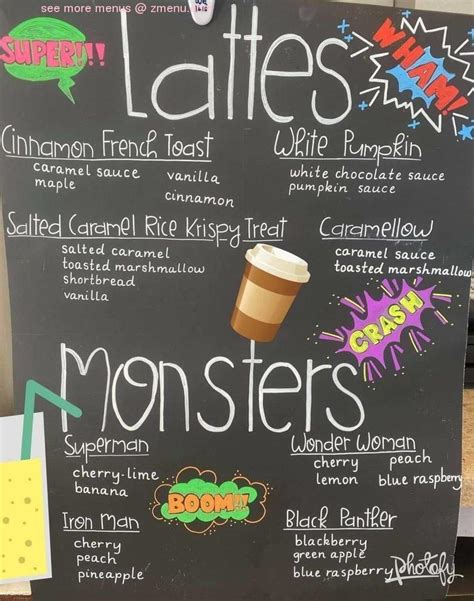 see more menus @ zmenu.
SUPER!!!
Lattes
WHAM!
Cinnamon French Toast
caramel sauce vanilla
maple cinnamon
White Pumpkin
white chocolate sauce
pumpkin sauce
Salted Caramel Rice Krispy Treat
salted caramel
toasted marshmallow
shortbread
vanilla
Caramellow
caramel sauce
toasted marshmallow
CRASH
Monsters
Superman
cherry-lime
banana
Wonder Woman
cherry peach
lemon blue raspberry
BOOM!!!
Iron Man
cherry
peach
pineapple
Black Panther
blackberry
green apple
blue raspberry
photofy